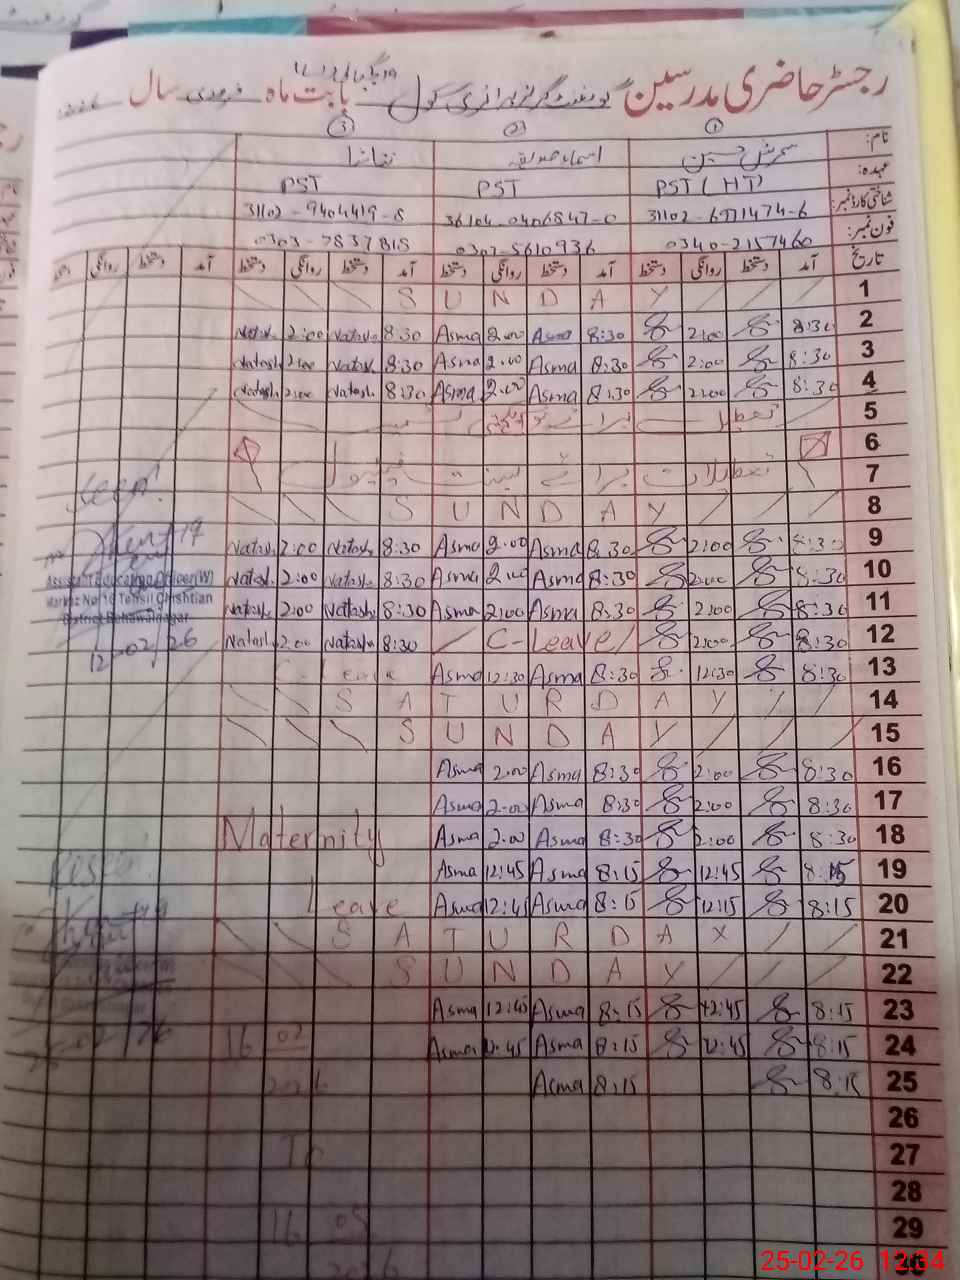 رجسٹر حاضری مدرسین گورنمنٹ گرلز پرائمری سکول بابت ماہ فروری سال
③ ② ①
نام: سحرش حسین اسماء صدیقہ نتاشا
عہدہ: PST (HT) PST PST
شناختی کارڈ نمبر: 31102-6971474-6 36104-0406847-0 31102-9404419-8
فون نمبر: 0340-2157460 0307-5610936 0303-7837818
تاریخ آمد دستخط روانگی دستخط آمد دستخط روانگی دستخط آمد دستخط روانگی دستخط آمد دستخط روانگی دستخط
S U N D A Y 1
Natash 2:00 Natash 8:30 Asma 2.00 Asma 8:30 2:00 8:30 2
Natash 2:00 Natash 8:30 Asma 2.00 Asma 8:30 2:00 8:30 3
Natash 2:00 Natash 8:30 Asma 2.00 Asma 8:30 2:00 8:30 4
5
6
تعطیلات برائے بسنت 7
S U N D A Y 8
Natash 2:00 Natash 8:30 Asma 2.00 Asma 8.30 2:00 8:30 9
Natash 2:00 Natash 8:30 Asma 2.00 Asma 8:30 2:00 8:30 10
Natash 2:00 Natash 8:30 Asma 2:00 Asma 8:30 2:00 8:30 11
Natash 2:00 Natash 8:30 C-Leave 2:00 8:30 12
C-Leave Asma 12:30 Asma 8:30 12:30 8:30 13
S A T U R D A Y 14
S U N D A Y 15
Asma 2.00 Asma 8:30 2:00 8:30 16
Asma 2.00 Asma 8:30 2:00 8:30 17
Maternity Asma 2.00 Asma 8:30 2:00 8:30 18
Asma 12:45 Asma 8:15 12:45 8:15 19
Leave Asma 12:45 Asma 8:15 12:15 8:15 20
S A T U R D A Y 21
S U N D A Y 22
Asma 12:45 Asma 8:15 12:45 8:15 23
16 02 Asma 12:45 Asma 8:15 12:45 8:15 24
2026 Asma 8:15 8:15 25
26
To 27
28
16 05 29
2026
Seen
Assistant Education Officer(W)
Markaz No 16 Tehsil Chishtian
District Bahawalnagar
12-02/26
25-02-26 12:34